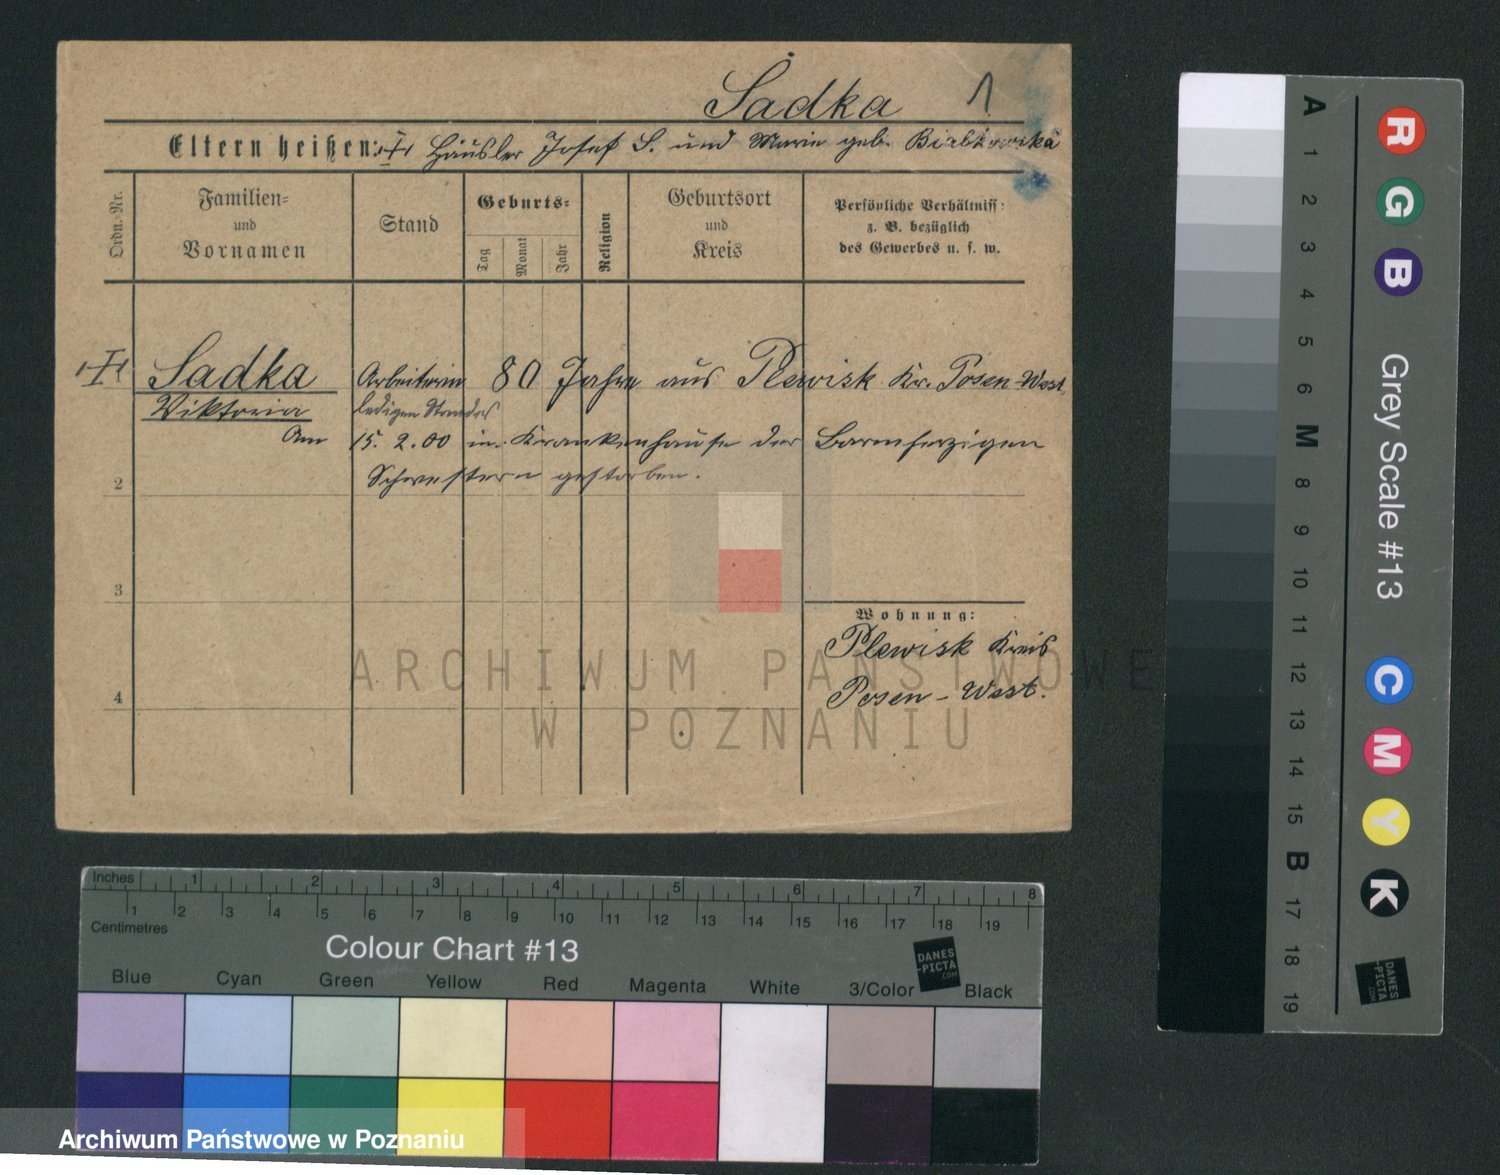 Sadka 1
Eltern heißen: Häusler Josef S. und Marie geb.
Ordn.-Nr.
Familien-
und
Vornamen
Stand
Geburts-
Tag
Monat
Jahr
Religion
Geburtsort
und
Kreis
Persönliche Verhältniss:
z. B. bezüglich
des Gewerbes u. s. w.
Sadka Arbeiterin 80 Jahre aus Plewisk Kr. Posen-West
Viktoria ledigen Standes
Am 15. 2.00 im Krankenhause der Barmherzigen
Schwestern gestorben.
2
3
4
Wohnung:
Plewisk Kreis
Posen-West.
ARCHIWUM PAŃSTWOWE
W POZNANIU
Inches 1 2 3 4 5 6 7 8
1 2 3 4 5 6 7 8 9 10 11 12 13 14 15 16 17 18 19
Centimetres
Colour Chart #13
DANES
-PICTA
.COM
Blue Cyan Green Yellow Red Magenta White 3/Color Black
Archiwum Państwowe w Poznaniu
A 1 2 3 4 5 6 M 8 9 10 11 12 13 14 15 B 17 18 19
R G B
Grey Scale #13
C M Y K
DANES
-PICTA
.COM